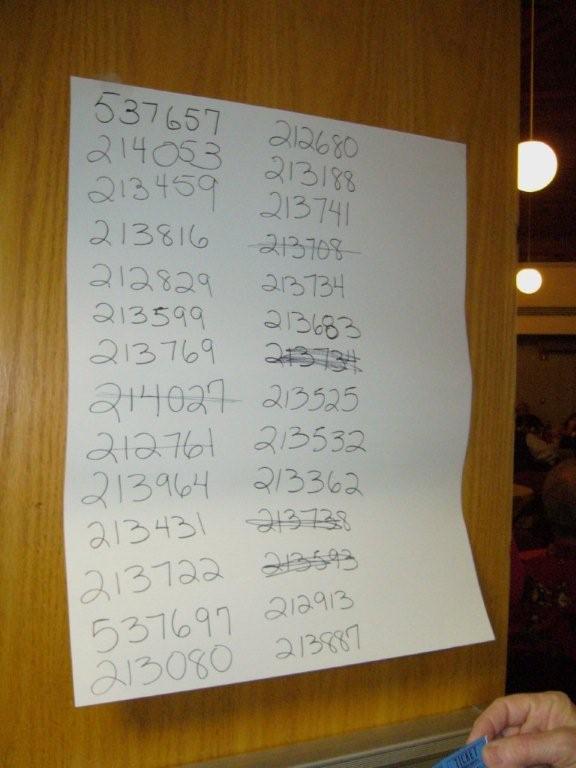 537657
214053
213459
213816
212829
213599
213769
214027
212761
213964
213431
213722
537697
213080
212680
213188
213741
213708
213734
213683
213734
213525
213532
213362
213738
213593
212913
213887
TICKET